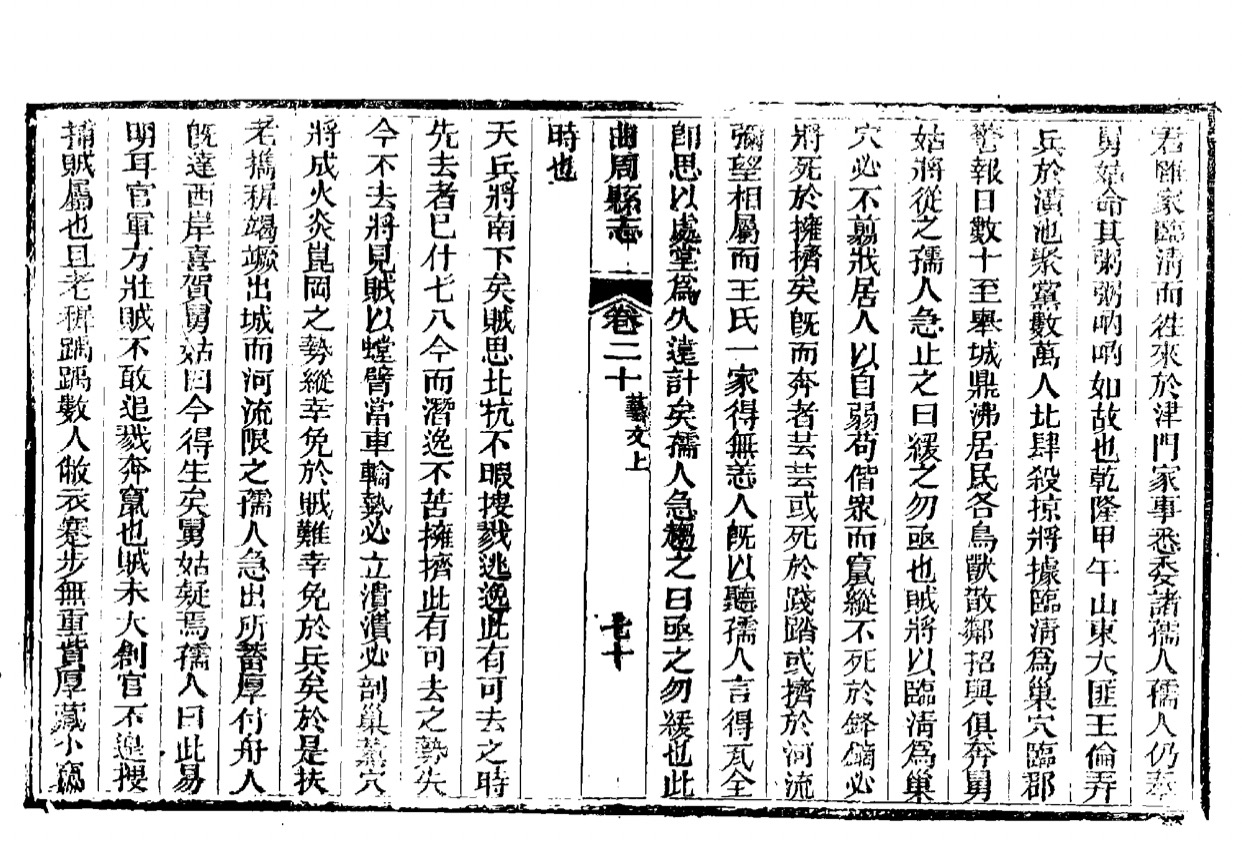 君離家臨清而徃來於津門家事悉委諸孺人孺人仍奉
舅姑命其粥粥呐呐如故也乾隆甲午山東大匪王倫弄
兵於潢池聚黨數萬人北肆殺掠將據臨清爲巢穴臨郡
警報日數十至舉城鼎沸居民各鳥獸散鄰招與俱奔舅
姑將從之孺人急止之曰緩之勿亟也賊將以臨清爲巢
穴必不翦戕居人以自弱苟偕衆而竄縱不死於鋒鏑必
將死於擁擠矣旣而奔者芸芸或死於踐踏或擠於河流
彌望相屬而王氏一家得無恙人旣以聽孺人言得瓦全
卽思以處堂爲久遠計矣孺人急趨之曰亟之勿緩也此
曲周縣志 卷二十 藝文上 七十
時也
天兵將南下矣賊思北抗不暇搜戮逃逸此有可去之時
先去者已什七八今而潛逸不苦擁擠此有可去之勢先
今不去將見賊以螳臂當車輪勢必立潰潰必剖巢綦穴
將成火炎崑岡之勢縱幸免於賊難幸免於兵矣於是扶
老攜穉竭蹶出城而河流限之孺人急出所蓄厚付舟人
旣達西岸喜賀舅姑曰今得生矣舅姑疑焉孺人曰此易
明耳官軍方壯賊不敢追戮奔竄也賊未大創官不遑搜
捕賊屬也且老穉踽踽數人敝衣蹇步無重貲厚藏小竊